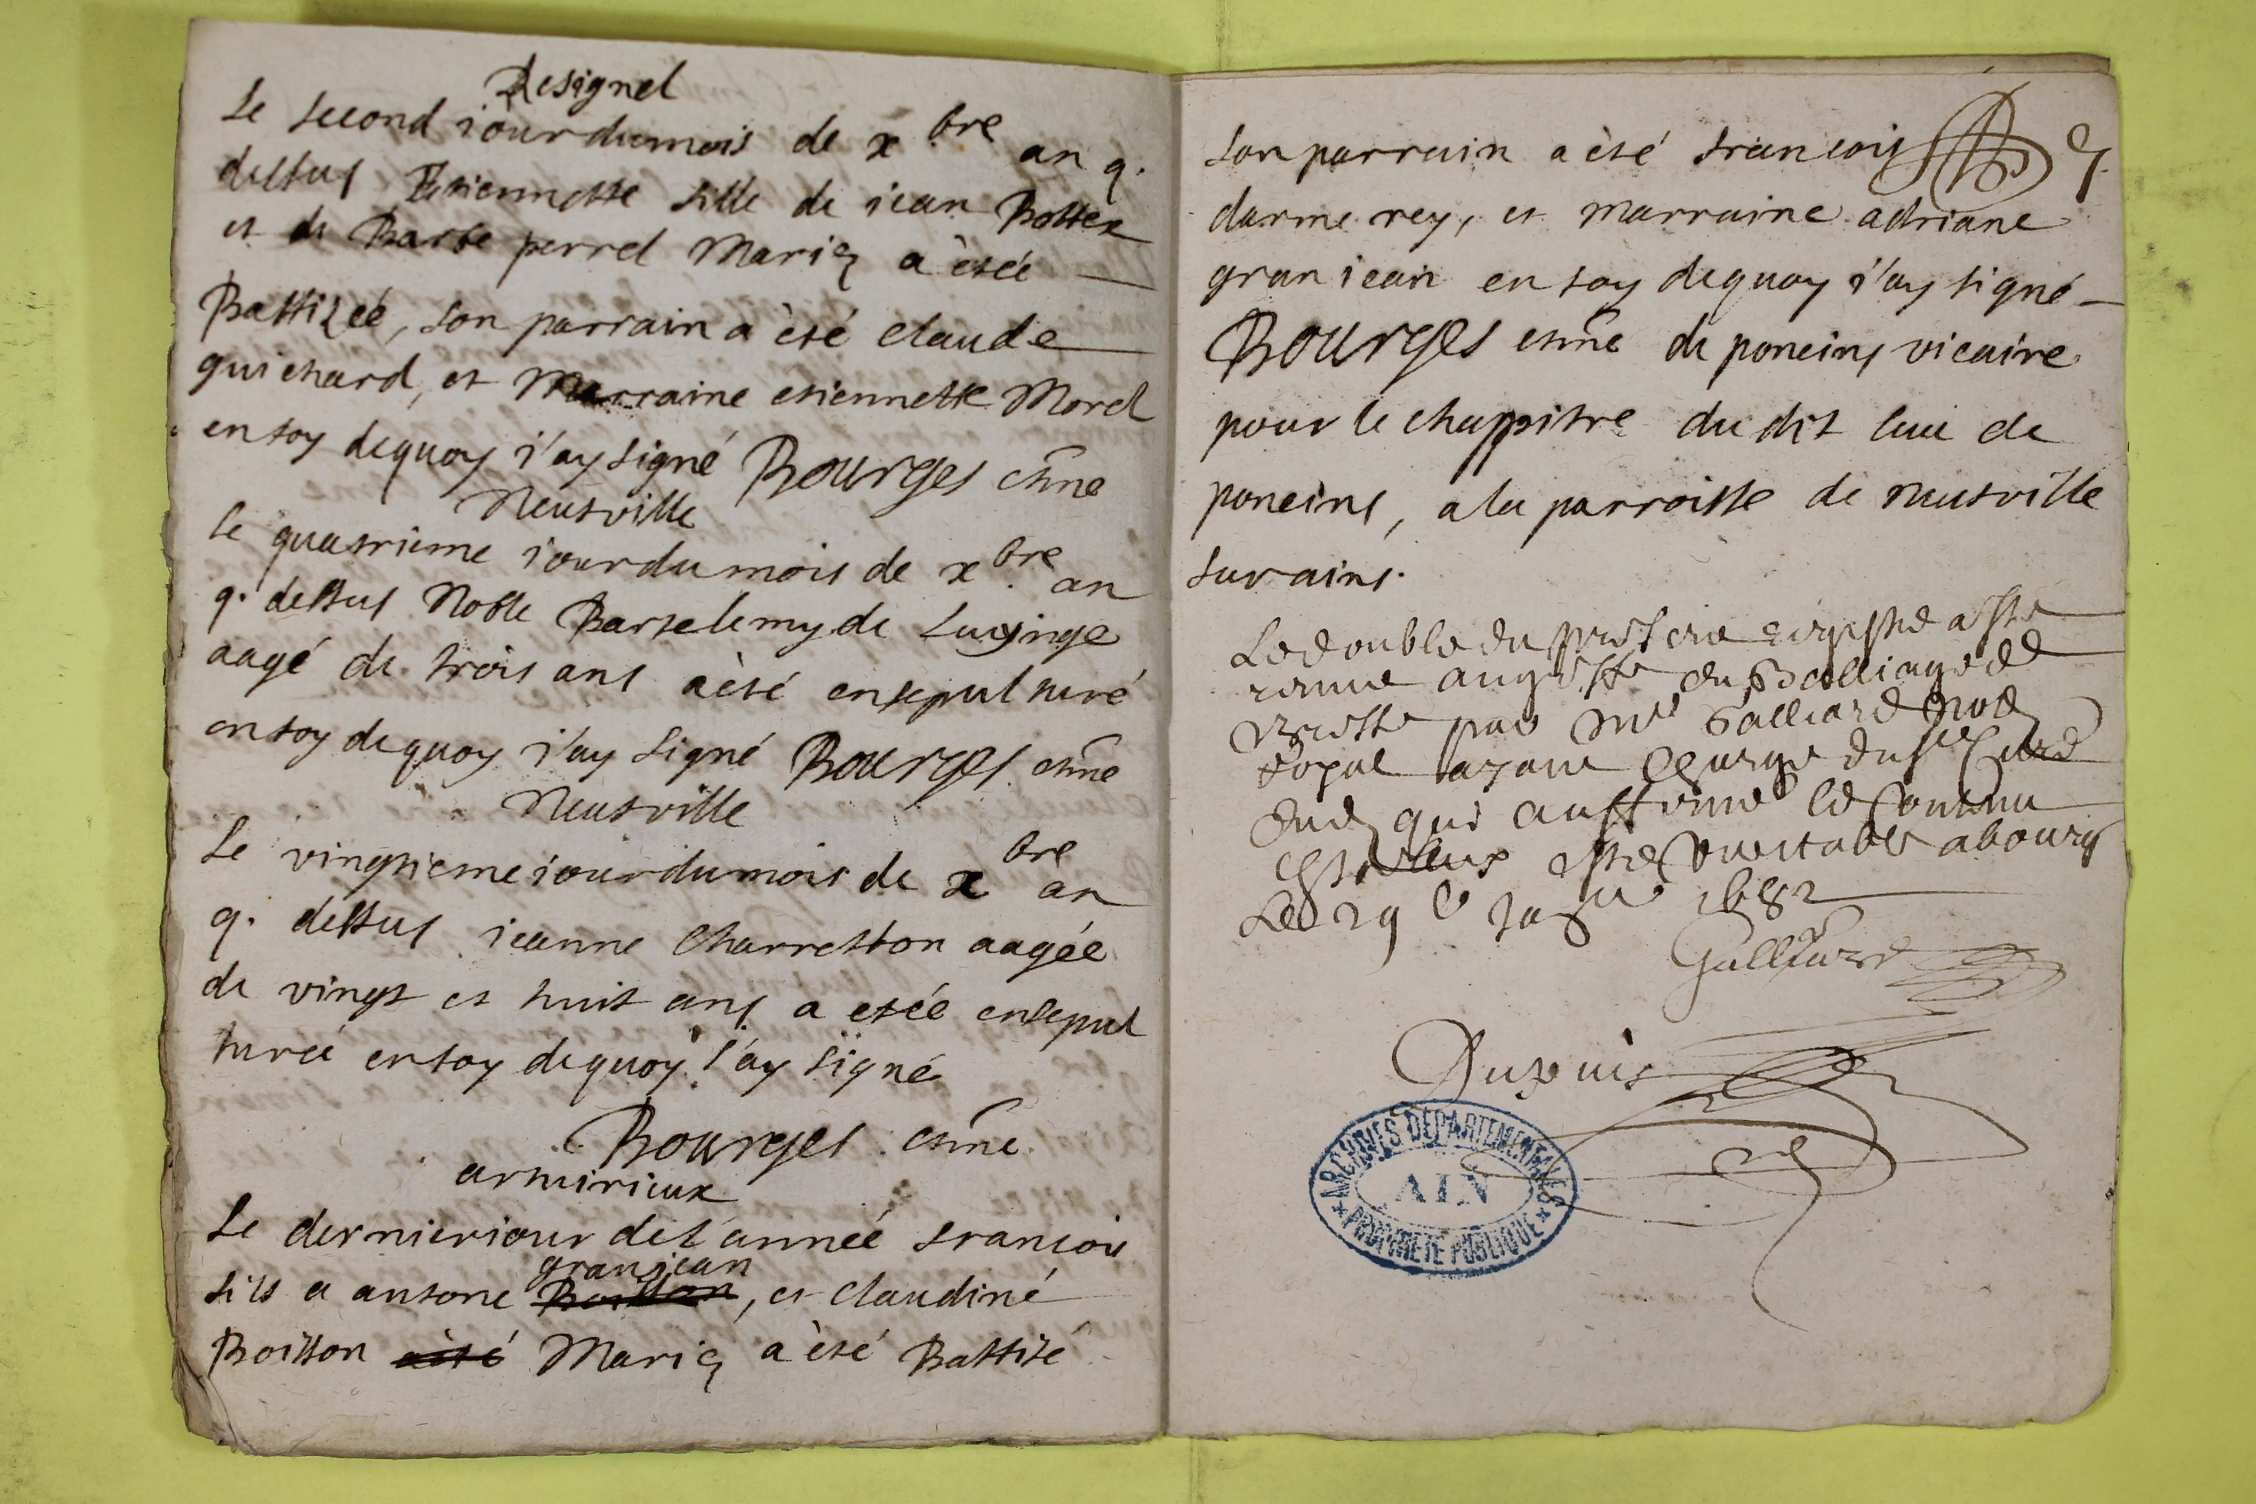 Resignel
Le second iour du mois de xbre an q.
dessus Etiennette fille de iean Bottex
et de Barbe perrel Mariez a étée
Battizéé, son parrain a été claude
guichard, et Marraine etiennette Morel
en foy de quoy i'ay signé Bourges
Neufville
le quatrieme iour du mois de xbre an
q. dessus Noble Bartelemy de Lucinge
aagé de trois ans a été ensepulturé
en foy de quoy i'ay signé Bourges
Neufville
Le vingtieme iour du mois de xbre an
q. dessus ieanne Charretton aagée
de vingt et huit ans a etée ensepul
turéé en foy de quoy i'ay signé
Bourges
arthirieux
Le dernier iour de l'année francois
fils a antone granjean, et claudine
Boisson Mariez a été Battisé
son parrain a été francois
darmerey, et marraine adriane
granjean en foy de quoy i'ay signé
Bourges de poncins vicaire
pour le chappitre du dit lieu de
poncins, a la parroisse de neufville
sur ains.
Le double du a esté
remis au greffe du Balliage de
Bresse par Me Galliard
royal ayant charge du sr Curé
qui affirme le Contenu
veritable a bourg
Le 29e 1682
Galliard
Dupuis
ARCHIVES DÉPARTEMENTALES
AIN
PROPRIÉTÉ PUBLIQUE